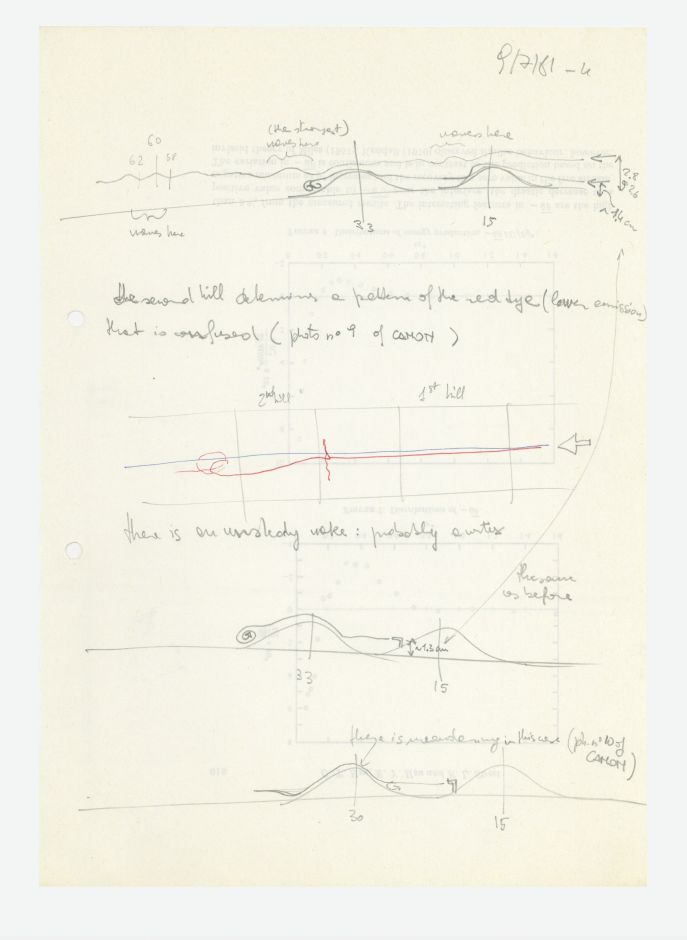 9/7/81 - 4
(the strongest)
waves here
waves here
60
62
58
2.8
waves here
33
15
the second hill determines a pattern of the red dye (lower emission)
that is confused (photo n° 9 of CANON)
2nd hill
1st hill
there is an unsteady wake: probably a vortex
the same
as before
~1.3 cm
33
15
there is meandering in this case (ph. n° 10 of
CANON)
30
15